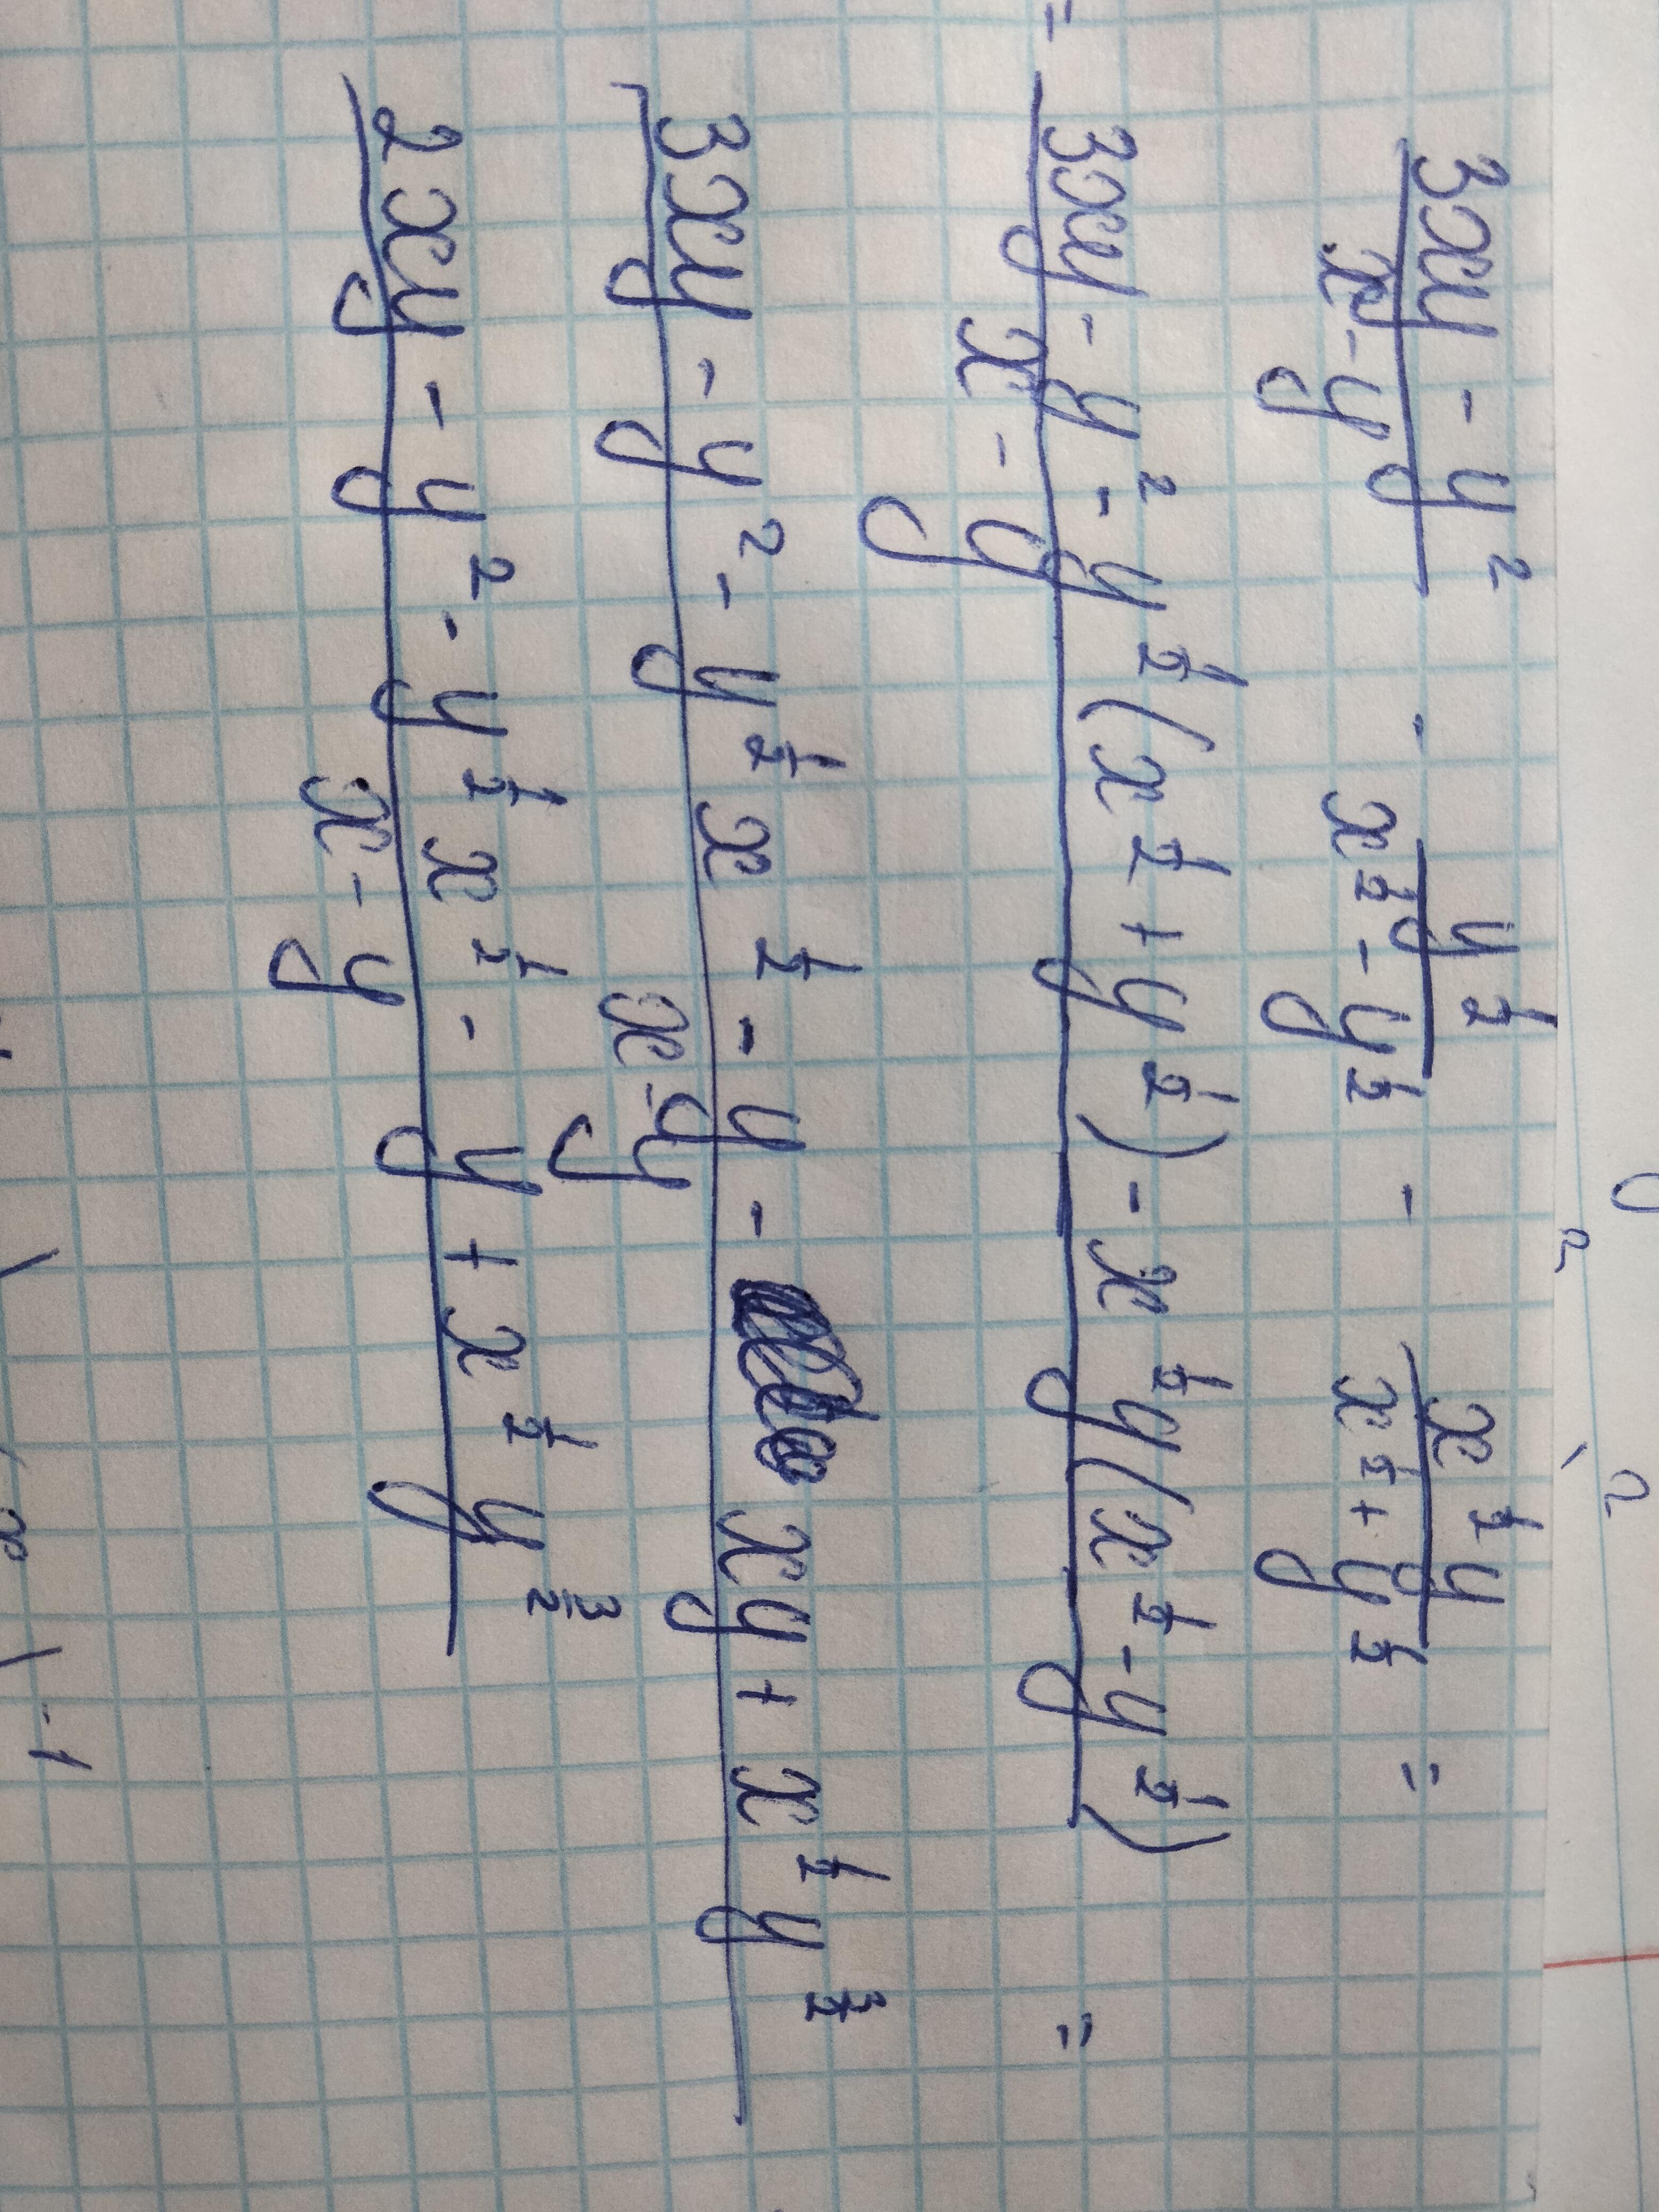 (3xy - y²)/(x - y) - y^(1/2)/(x^(1/2) - y^(1/2)) - x^(1/2)y/(x^(1/2) + y^(1/2)) =
= (3xy - y² - y^(1/2)(x^(1/2) + y^(1/2)) - x^(1/2)y(x^(1/2) - y^(1/2)))/(x - y) =
(3xy - y² - y^(1/2)x^(1/2) - y - xy + x^(1/2)y^(3/2))/(x - y)
(2xy - y² - y^(1/2)x^(1/2) - y + x^(1/2)y^(3/2))/(x - y)
-1